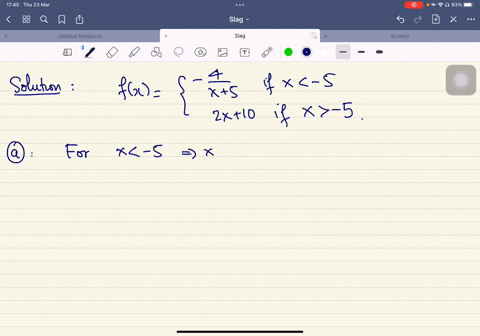 17:45 Thu 23 Mar
93%
Slag
Untitled Notebook
Slag
Scratch
Solution : f(x) = { -4/(x+5) if x < -5
2x+10 if x > -5 .
(a) : For x < -5 ⇒ x